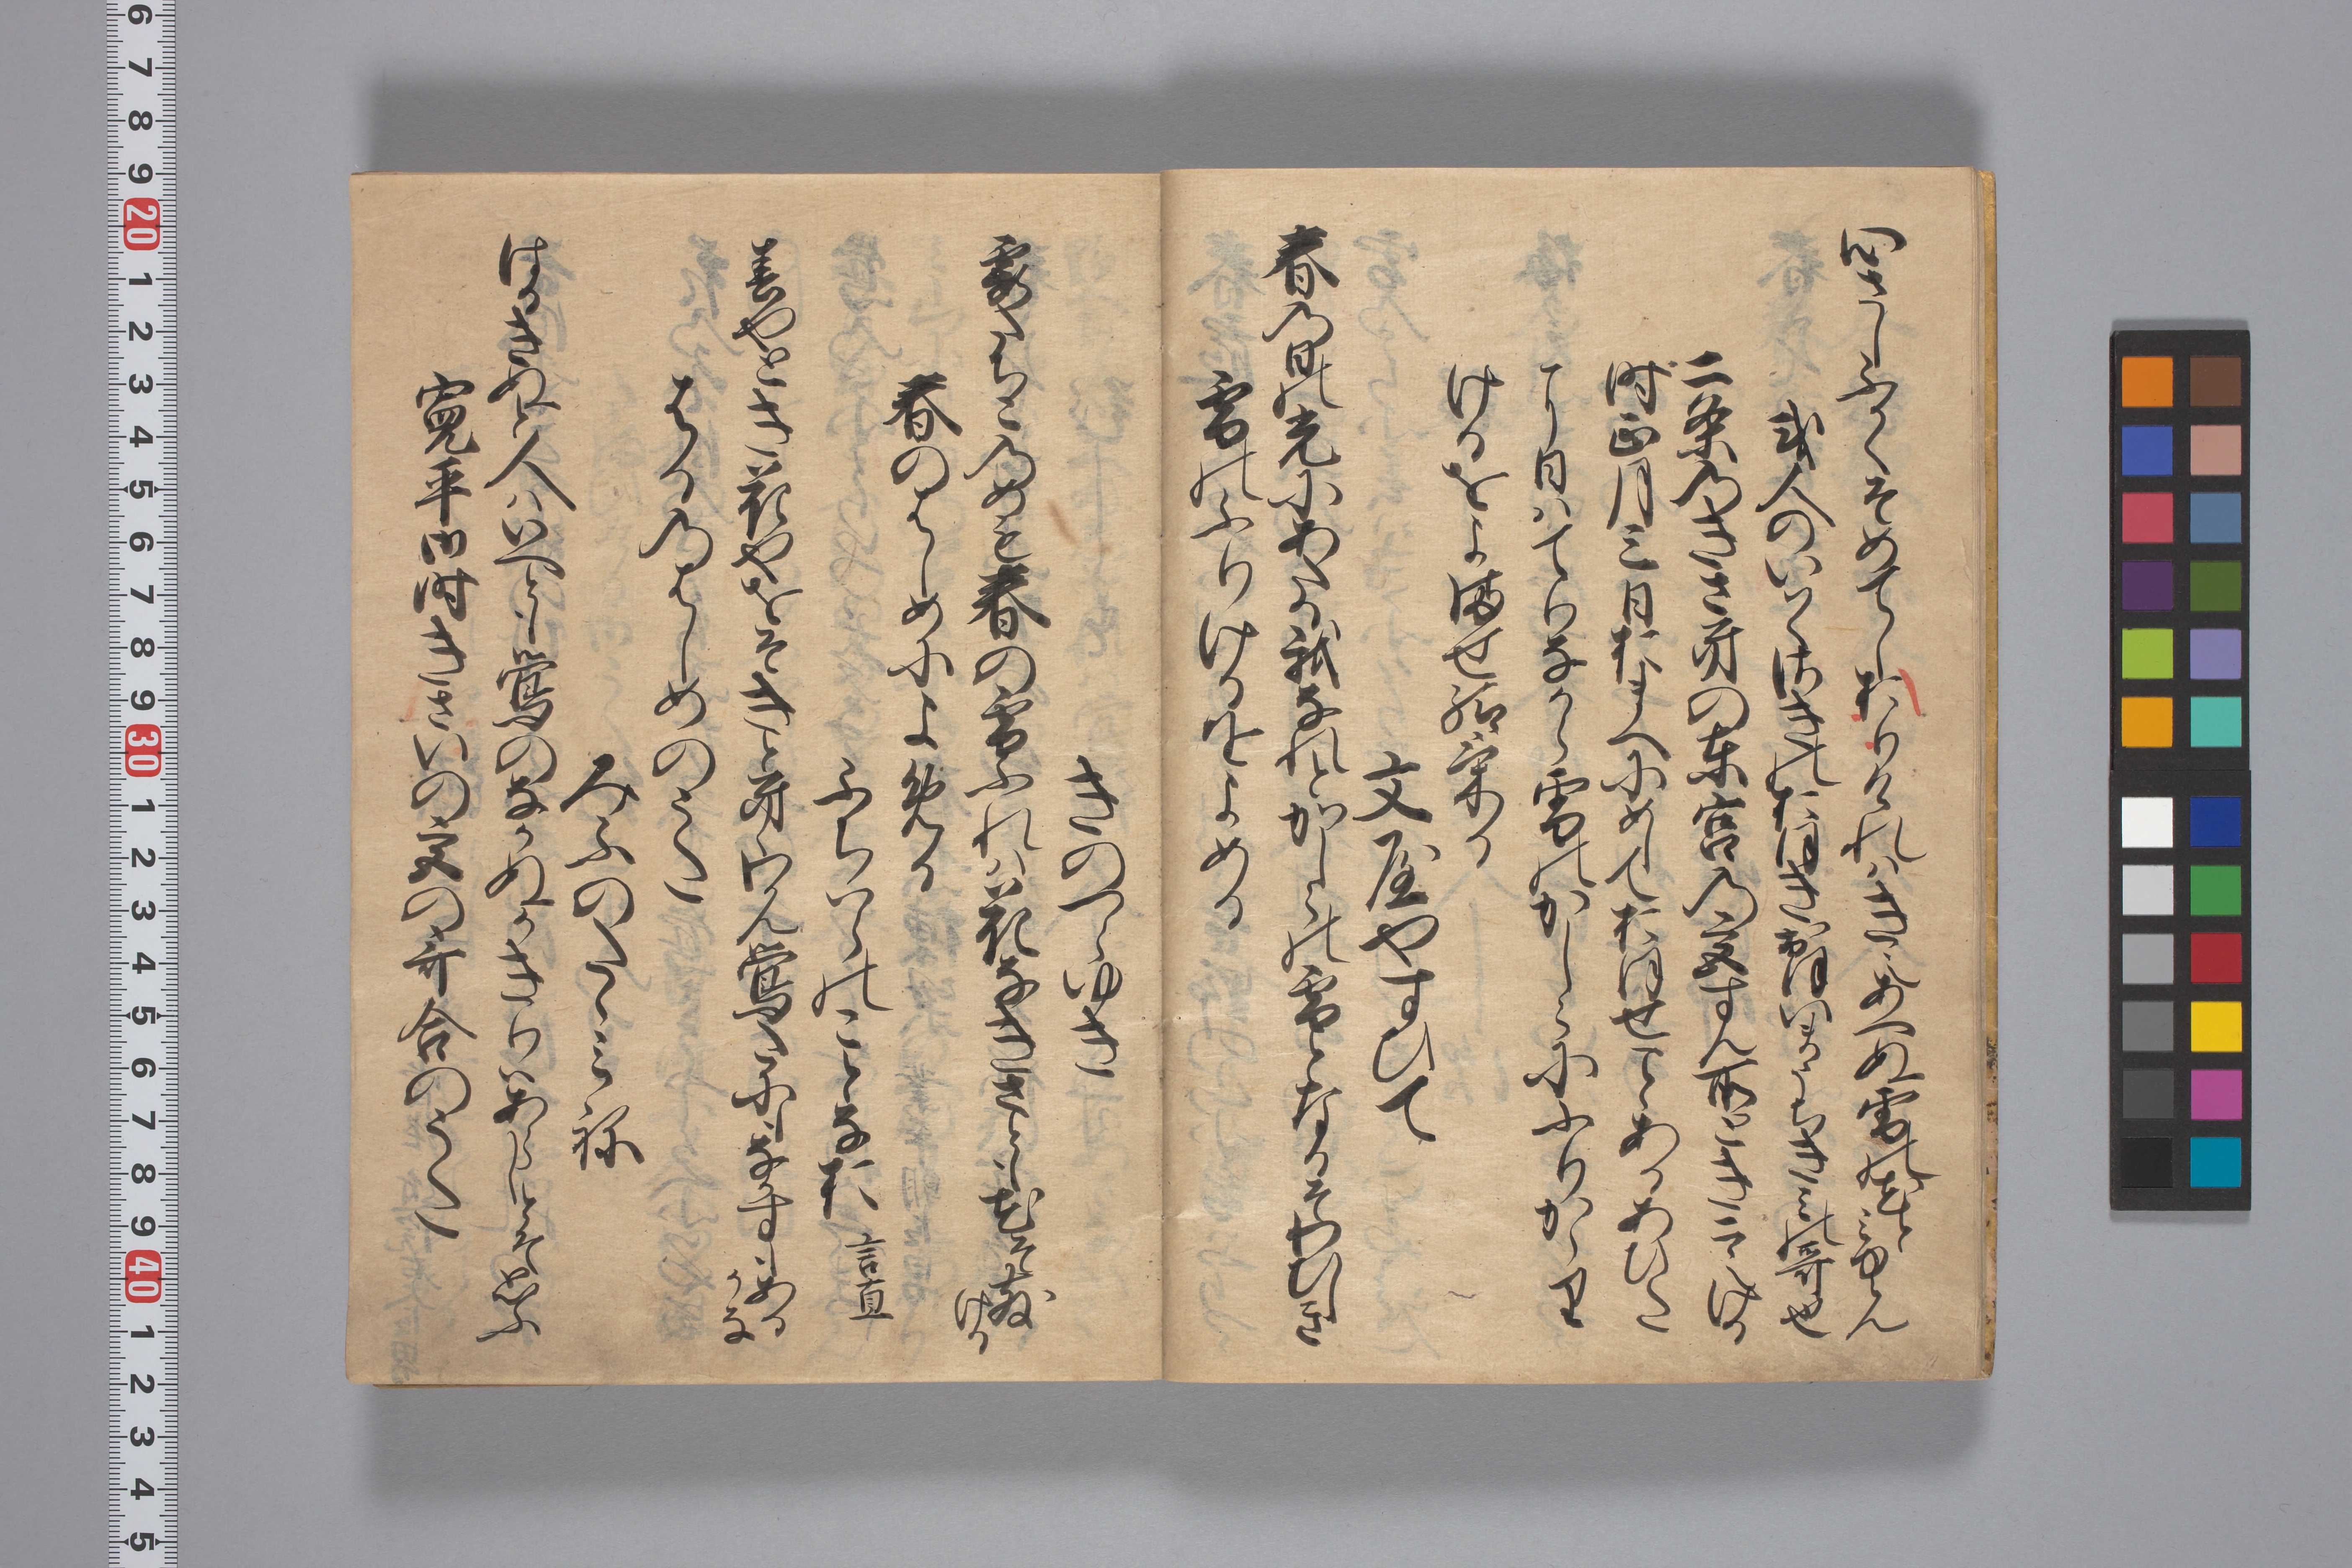 心さしふかくそめてしおりけれはきえあへぬ雪の花とみゆらん
或人のいはくさきのおほきおほいまうちきみの哥也
二条乃きさきの東宮乃み母すん所ときこえける
時正月三日おまへにめしておほせことあるあひた
に日はてりなから雪のかしらにふりかゝり
けるをよませ給ける
文屋やすひて
春乃日の光にあたる我なれとかしらの雪となるそわひしき
雪のふりけるをよめる
きのつらゆき
霞たちこのめも春の雪ふれは花なきさとも花そ散ける
春のはしめによめる
ふちはらのことなお 言直
春やとき花やをそきときゝわかん鴬たにもなかすもあるかな
はる乃はしめのうた
みふのたゝみね
はるきぬと人はいへとも鴬のなかぬかきりはあらしとそ思ふ
寛平御時きさいの宮の哥合のうた